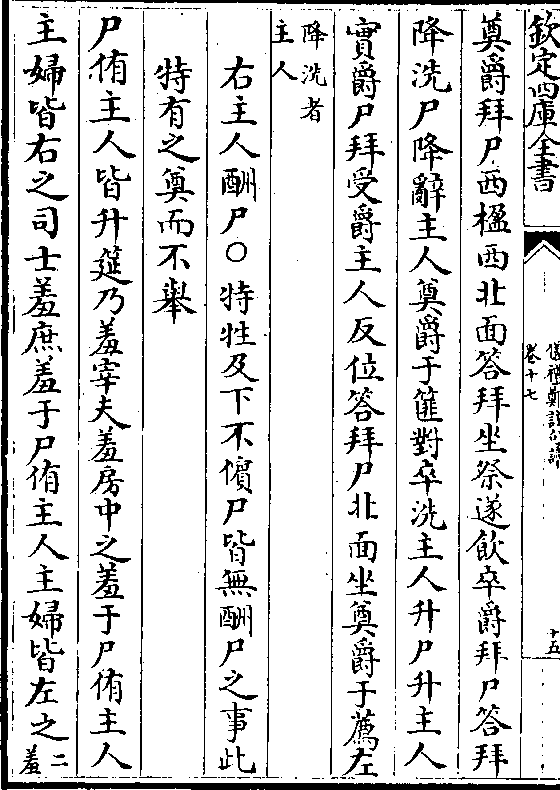 欽定四庫全書
儀禮鄭註句讀
卷十七
十五
奠爵拜尸西楹西北面答拜坐祭遂飲卒爵拜尸答拜
降洗尸降辭主人奠爵于篚對卒洗主人升尸升主人
實爵尸拜受爵主人反位答拜尸北面坐奠爵于薦左
降洗者
主人
右主人酬尸○特牲及下不儐尸皆無酬尸之事此
特有之奠而不舉
尸侑主人皆升筵乃羞宰夫羞房中之羞于尸侑主人
主婦皆右之司士羞庶羞于尸侑主人主婦皆左之二
羞